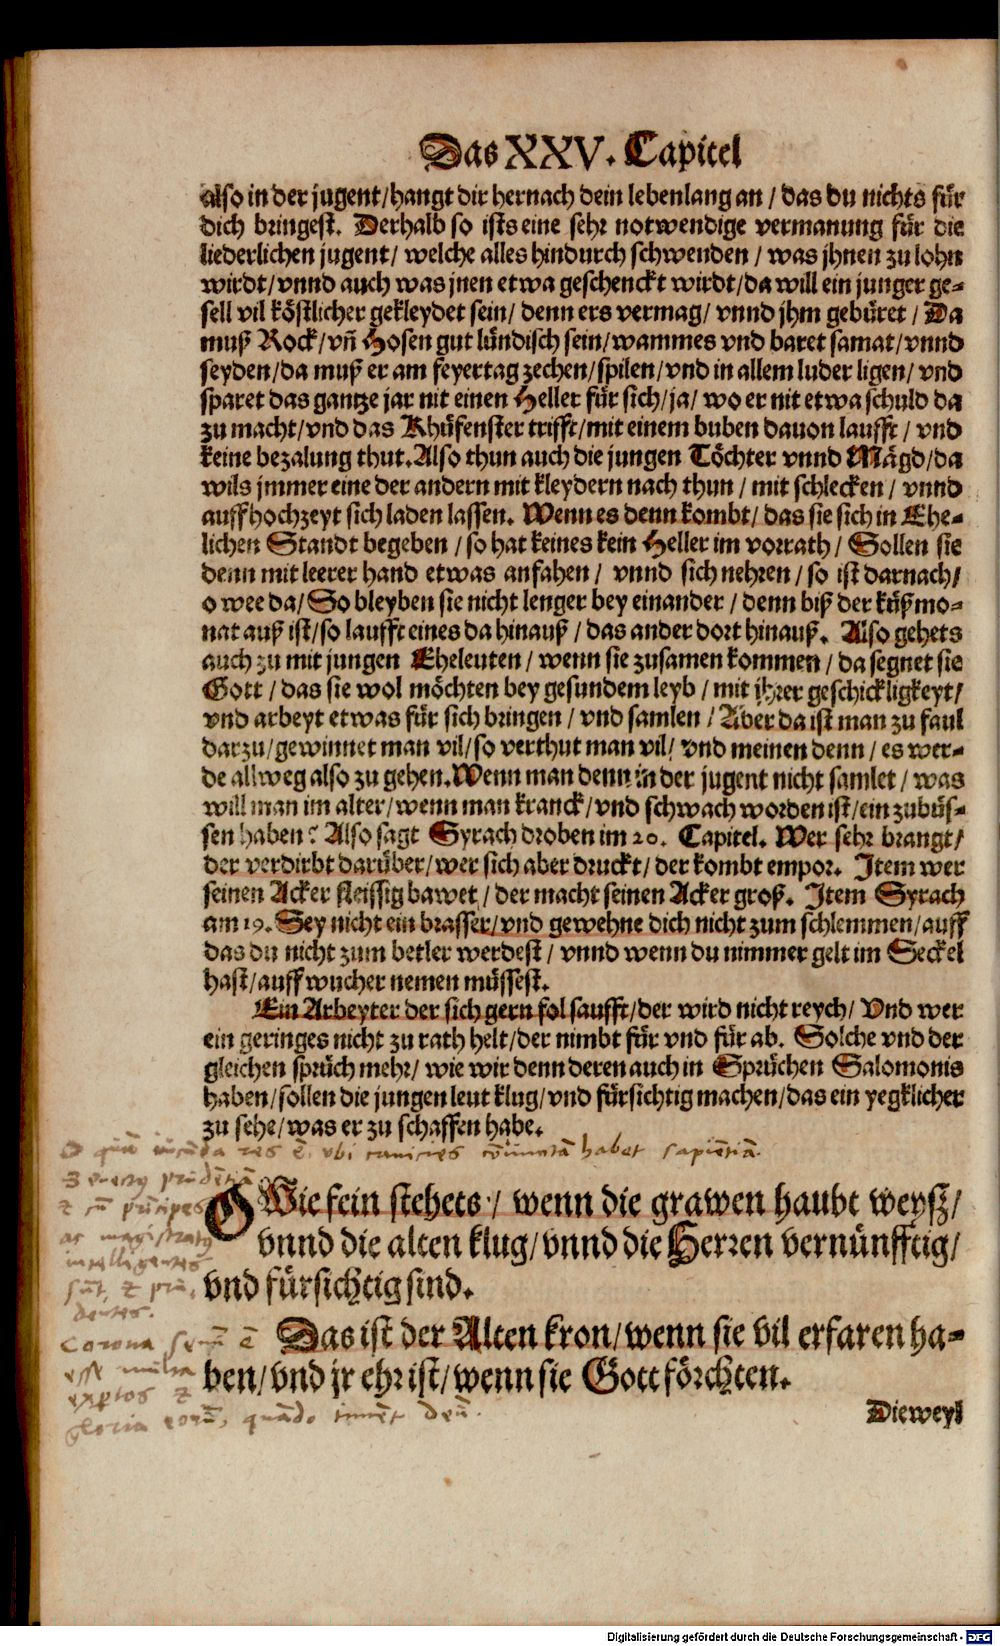 Das XXV. Capitel
also in der jugent/hangt dir hernach dein lebenlang an / das du nichts für
dich bringest. Derhalb so ists eine sehr notwendige vermanung für die
liederlichen jugent/ welche alles hindurch schwenden / was jhnen zu lohn
wirdt/vnnd auch was jnen etwa geschenckt wirdt/da will ein junger ge-
sell vil köstlicher gekleydet sein/ denn ers vermag/ vnnd jhm gebüret / Da
muß Rock/vñ Hosen gut lündisch sein/wammes vnd baret samat/vnnd
seyden/da muß er am feyertag zechen/spilen/vnd in allem luder ligen/ vnd
sparet das gantze jar nit einen Heller für sich/ja/ wo er nit etwa schuld da
zu macht/vnd das Khüfenster trifft/mit einem buben dauon laufft / vnd
keine bezalung thut.Also thun auch die jungen Töchter vnnd Mägd/da
wils jmmer eine der andern mit kleydern nach thun / mit schlecken / vnnd
auff hochzeyt sich laden lassen. Wenn es denn kombt/ das sie sich in Ehe-
lichen Standt begeben / so hat keines kein Heller im vorrath / Sollen sie
denn mit leerer hand etwas anfahen / vnnd sich nehren / so ist darnach/
o wee da/ So bleyben sie nicht lenger bey einander / denn biß der küßmo-
nat auß ist/so laufft eines da hinauß / das ander dort hinauß. Also gehets
auch zu mit jungen Eheleuten / wenn sie zusamen kommen / da segnet sie
Gott / das sie wol möchten bey gesundem leyb / mit jhrer geschickligkeyt/
vnd arbeyt etwas für sich bringen / vnd samlen / Aber da ist man zu faul
darzu/gewinnet man vil/so verthut man vil/ vnd meinen denn / es wer-
de allweg also zu gehen.Wenn man denn in der jugent nicht samlet / was
will man im alter/wenn man kranck/vnd schwach worden ist/ein zubüs-
sen haben? Also sagt Syrach droben im 20. Capitel. Wer sehr brangt/
der verdirbt darüber/wer sich aber druckt/der kombt empor. Item wer
seinen Acker fleissig bawet / der macht seinen Acker groß. Item Syrach
am 19. Sey nicht ein brasser/vnd gewehne dich nicht zum schlemmen/auff
das du nicht zum betler werdest / vnnd wenn du nimmer gelt im Seckel
hast/auff wucher nemen müssest.
Ein Arbeyter der sich gern fol saufft/der wird nicht reych/ Vnd wer
ein geringes nicht zu rath helt/der nimbt für vnd für ab. Solche vnd der
gleichen sprüch mehr/ wie wir denn deren auch in Sprüchen Salomonis
haben/sollen die jungen leut klug/vnd fürsichtig machen/das ein yegklicher
zu sehe/was er zu schaffen habe.
res ē, vbi canicies habet sapiētiā.
prudētiā
prīcipes
ac magistratꝯ
intelligentes
dentes.
Corona ē
esse
gloria eorū, quādo timēt deū.
O Wie fein stehets / wenn die grawen haubt weysz/
vnnd die alten klug/vnnd die Herren vernünfftig/
vnd fürsichtig sind.
Das ist der Alten kron/wenn sie vil erfaren ha-
ben/vnd jr ehr ist/wenn sie Gott förchten.
Dieweyl
Digitalisierung gefördert durch die Deutsche Forschungsgemeinschaft - DFG